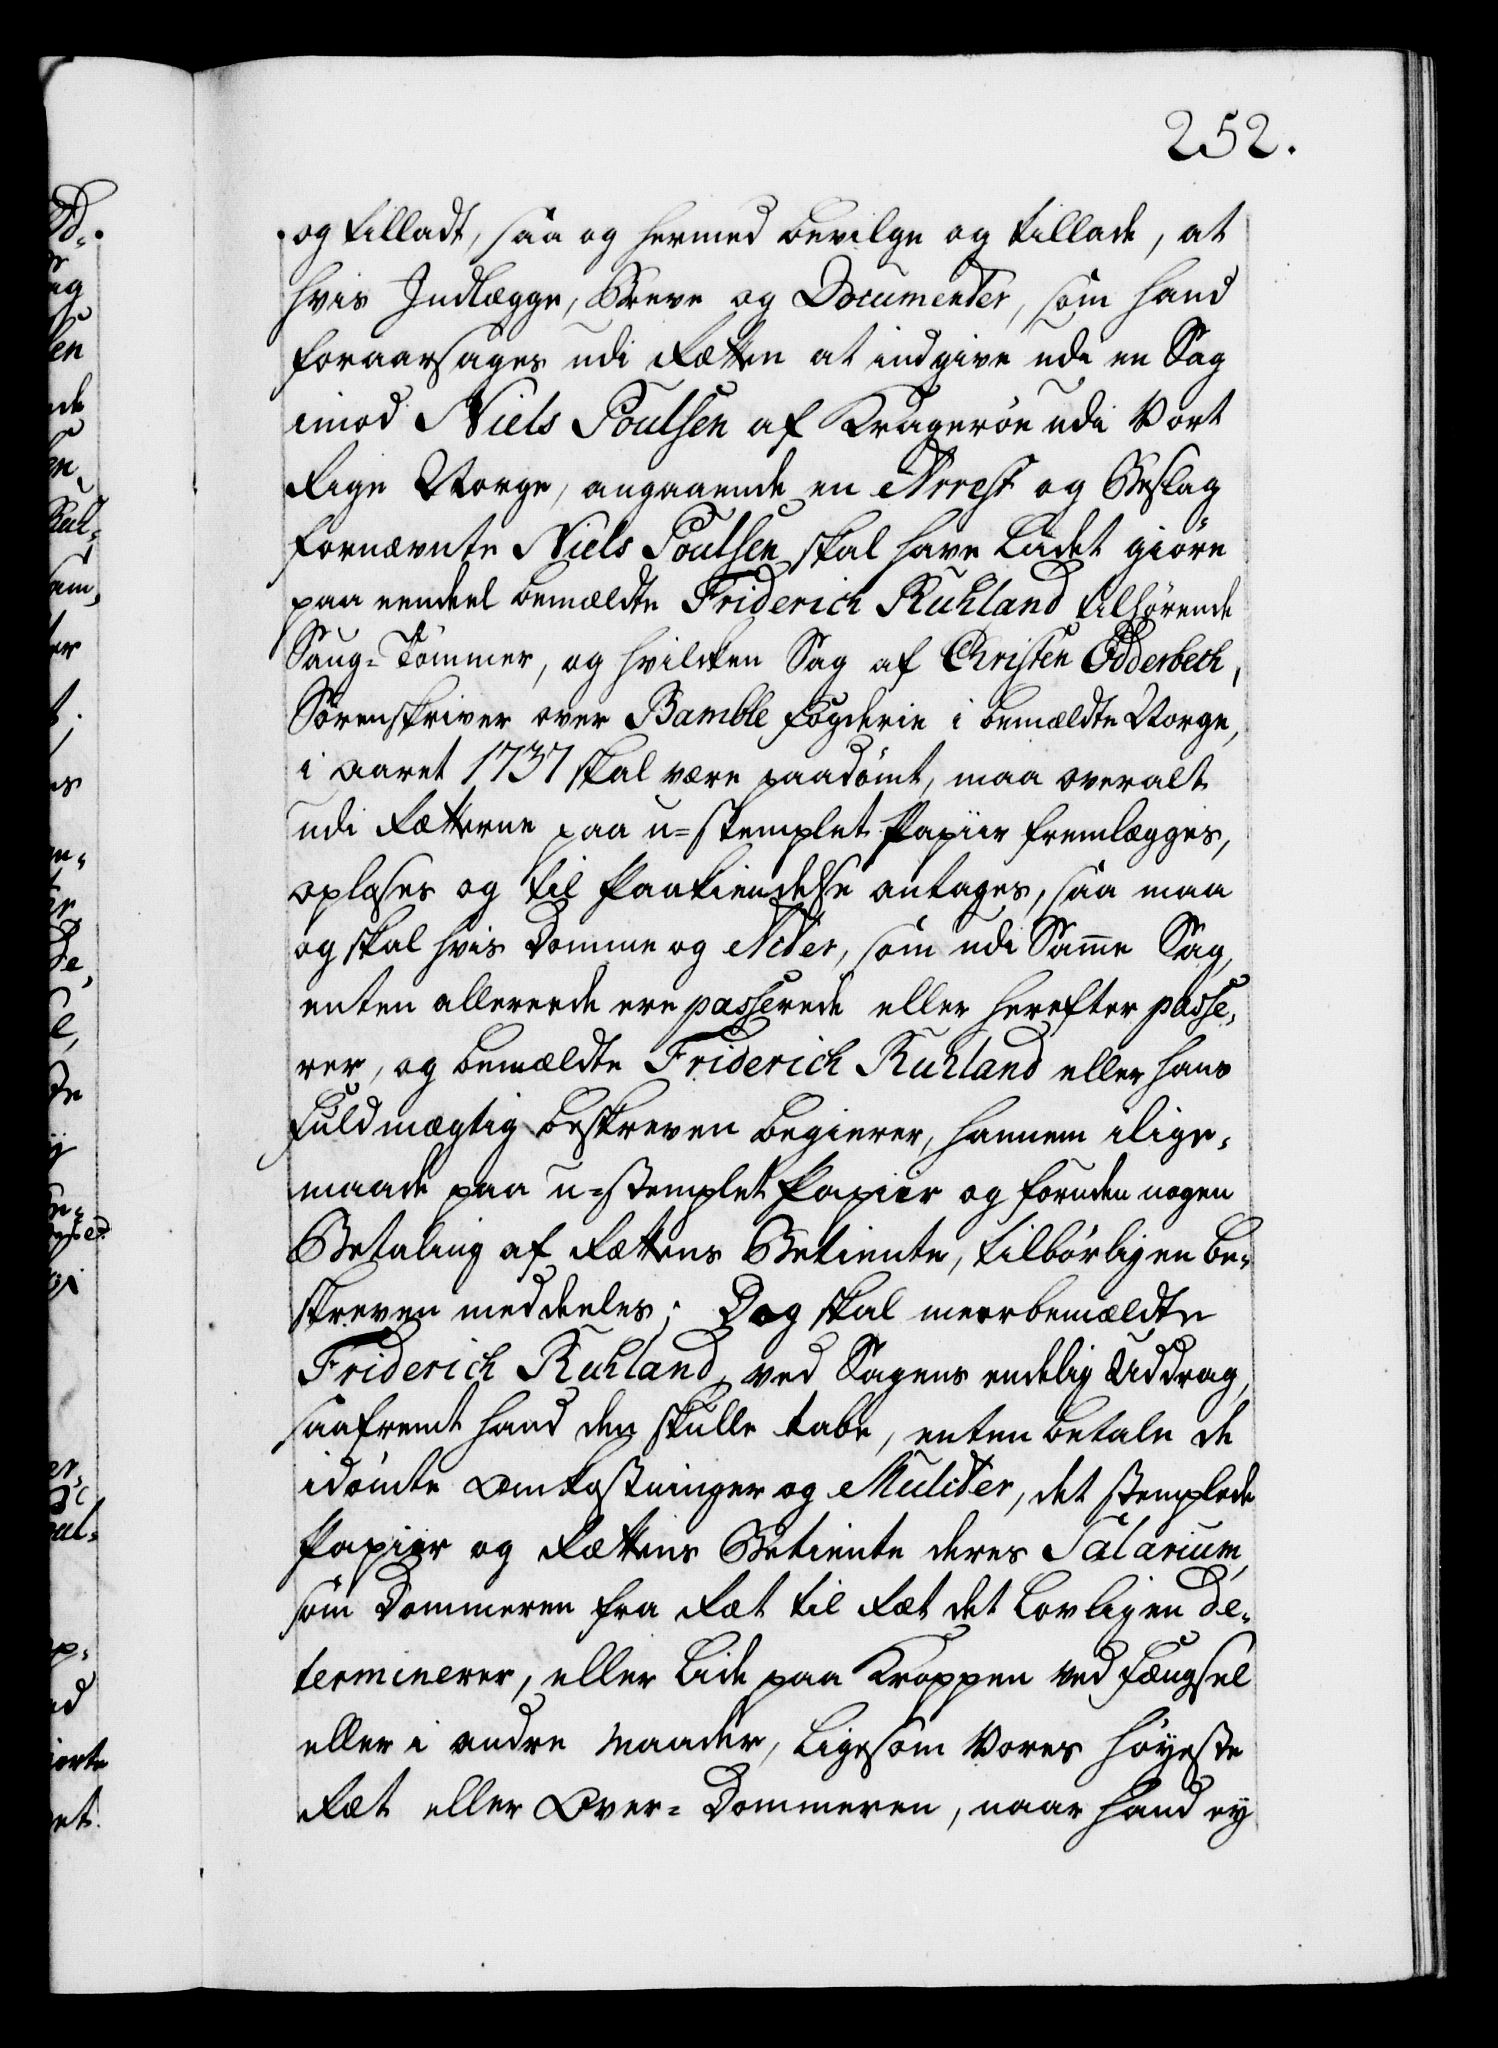 252.
og tilladt, saa og hermed bevilge og tillade, at
hvis Indlægge, Breve og Documenter, som hand
foraarsages udi Rætten at indgive udi en Sag
imod Niels Poulsen af Kragerøe udi Vort
Rige Norge, angaaende en Arrest og Beslag
fornævnte Niels Poulsen skal have ladet giøre
paa eendeel bemældte Friderich Ruhland tilhørende
Saug-Tømmer, og hvilken Sag af Christen Odderbech,
Sørenskriver over Bamble Fogderie i bemældte Norge,
i Aaret 1737 skal være paadømt, maa overalt
udi Rætterne paa u-stemplet Papiir fremlægges,
oplæses og til Paakiendelse antages, saa maa
og skal hvis Domme og Acter, som udi Samme Sag,
enten allereede ere passerede eller herefter passe-
rer, og bemældte Friderich Ruhland eller hans
Fuldmægtig beskreven begierer, hannem i lige-
maade paa u-stemplet Papiir og foruden nogen
Betaling af Rættens Betiente, tilbørligen be-
skreven meddeeles; Dog skal meerbemældte
Friderich Ruhland, ved Sagens endelig Uddrag,
saafremt hand den skulle tabe, enten betale de
idømte Omkostninger og Mulcter, det stemplede
Papiir og Rættens Betiente deres Salarium,
som Dommeren fra Ræt til Ræt det lovligen de-
terminerer, eller lide paa Kroppen ved Fængsel
eller i andre Maader, ligesom Vores Høyeste
Ræt eller Over-Dommeren, naar hand ey